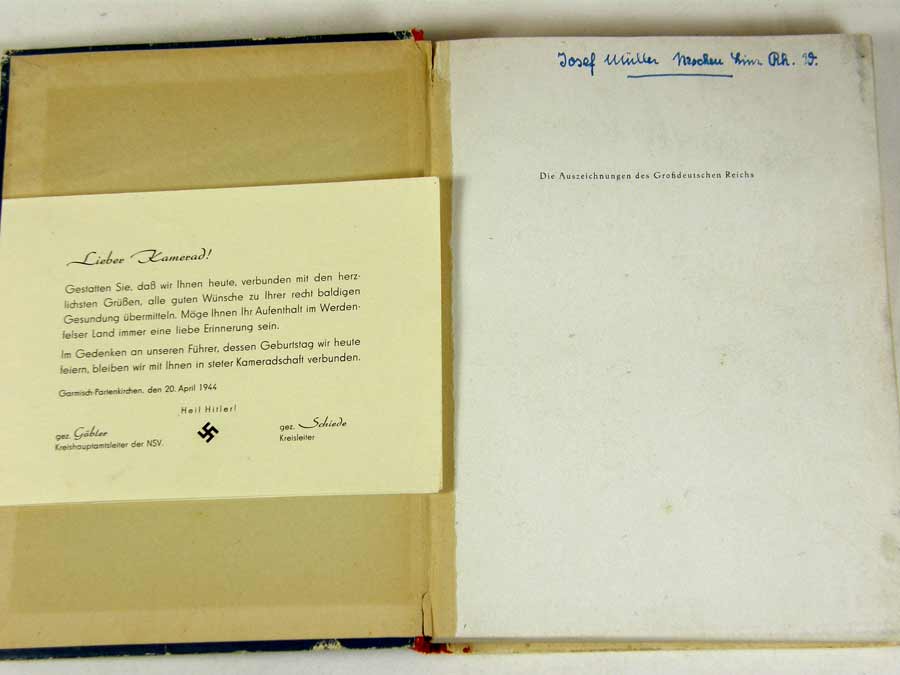 Lieber Kamerad!
Gestatten Sie, daß wir Ihnen heute, verbunden mit den herz-
lichsten Grüßen, alle guten Wünsche zu Ihrer recht baldigen
Gesundung übermitteln. Möge Ihnen Ihr Aufenthalt im Werden-
felser Land immer eine liebe Erinnerung sein.
Im Gedenken an unseren Führer, dessen Geburtstag wir heute
feiern, bleiben wir mit Ihnen in steter Kameradschaft verbunden.
Garmisch-Partenkirchen, den 20. April 1944
Heil Hitler!
gez. Gäbler
Kreishauptamtsleiter der NSV.
gez. Schiede
Kreisleiter
Josef Müller Rh.
Die Auszeichnungen des Großdeutschen Reichs